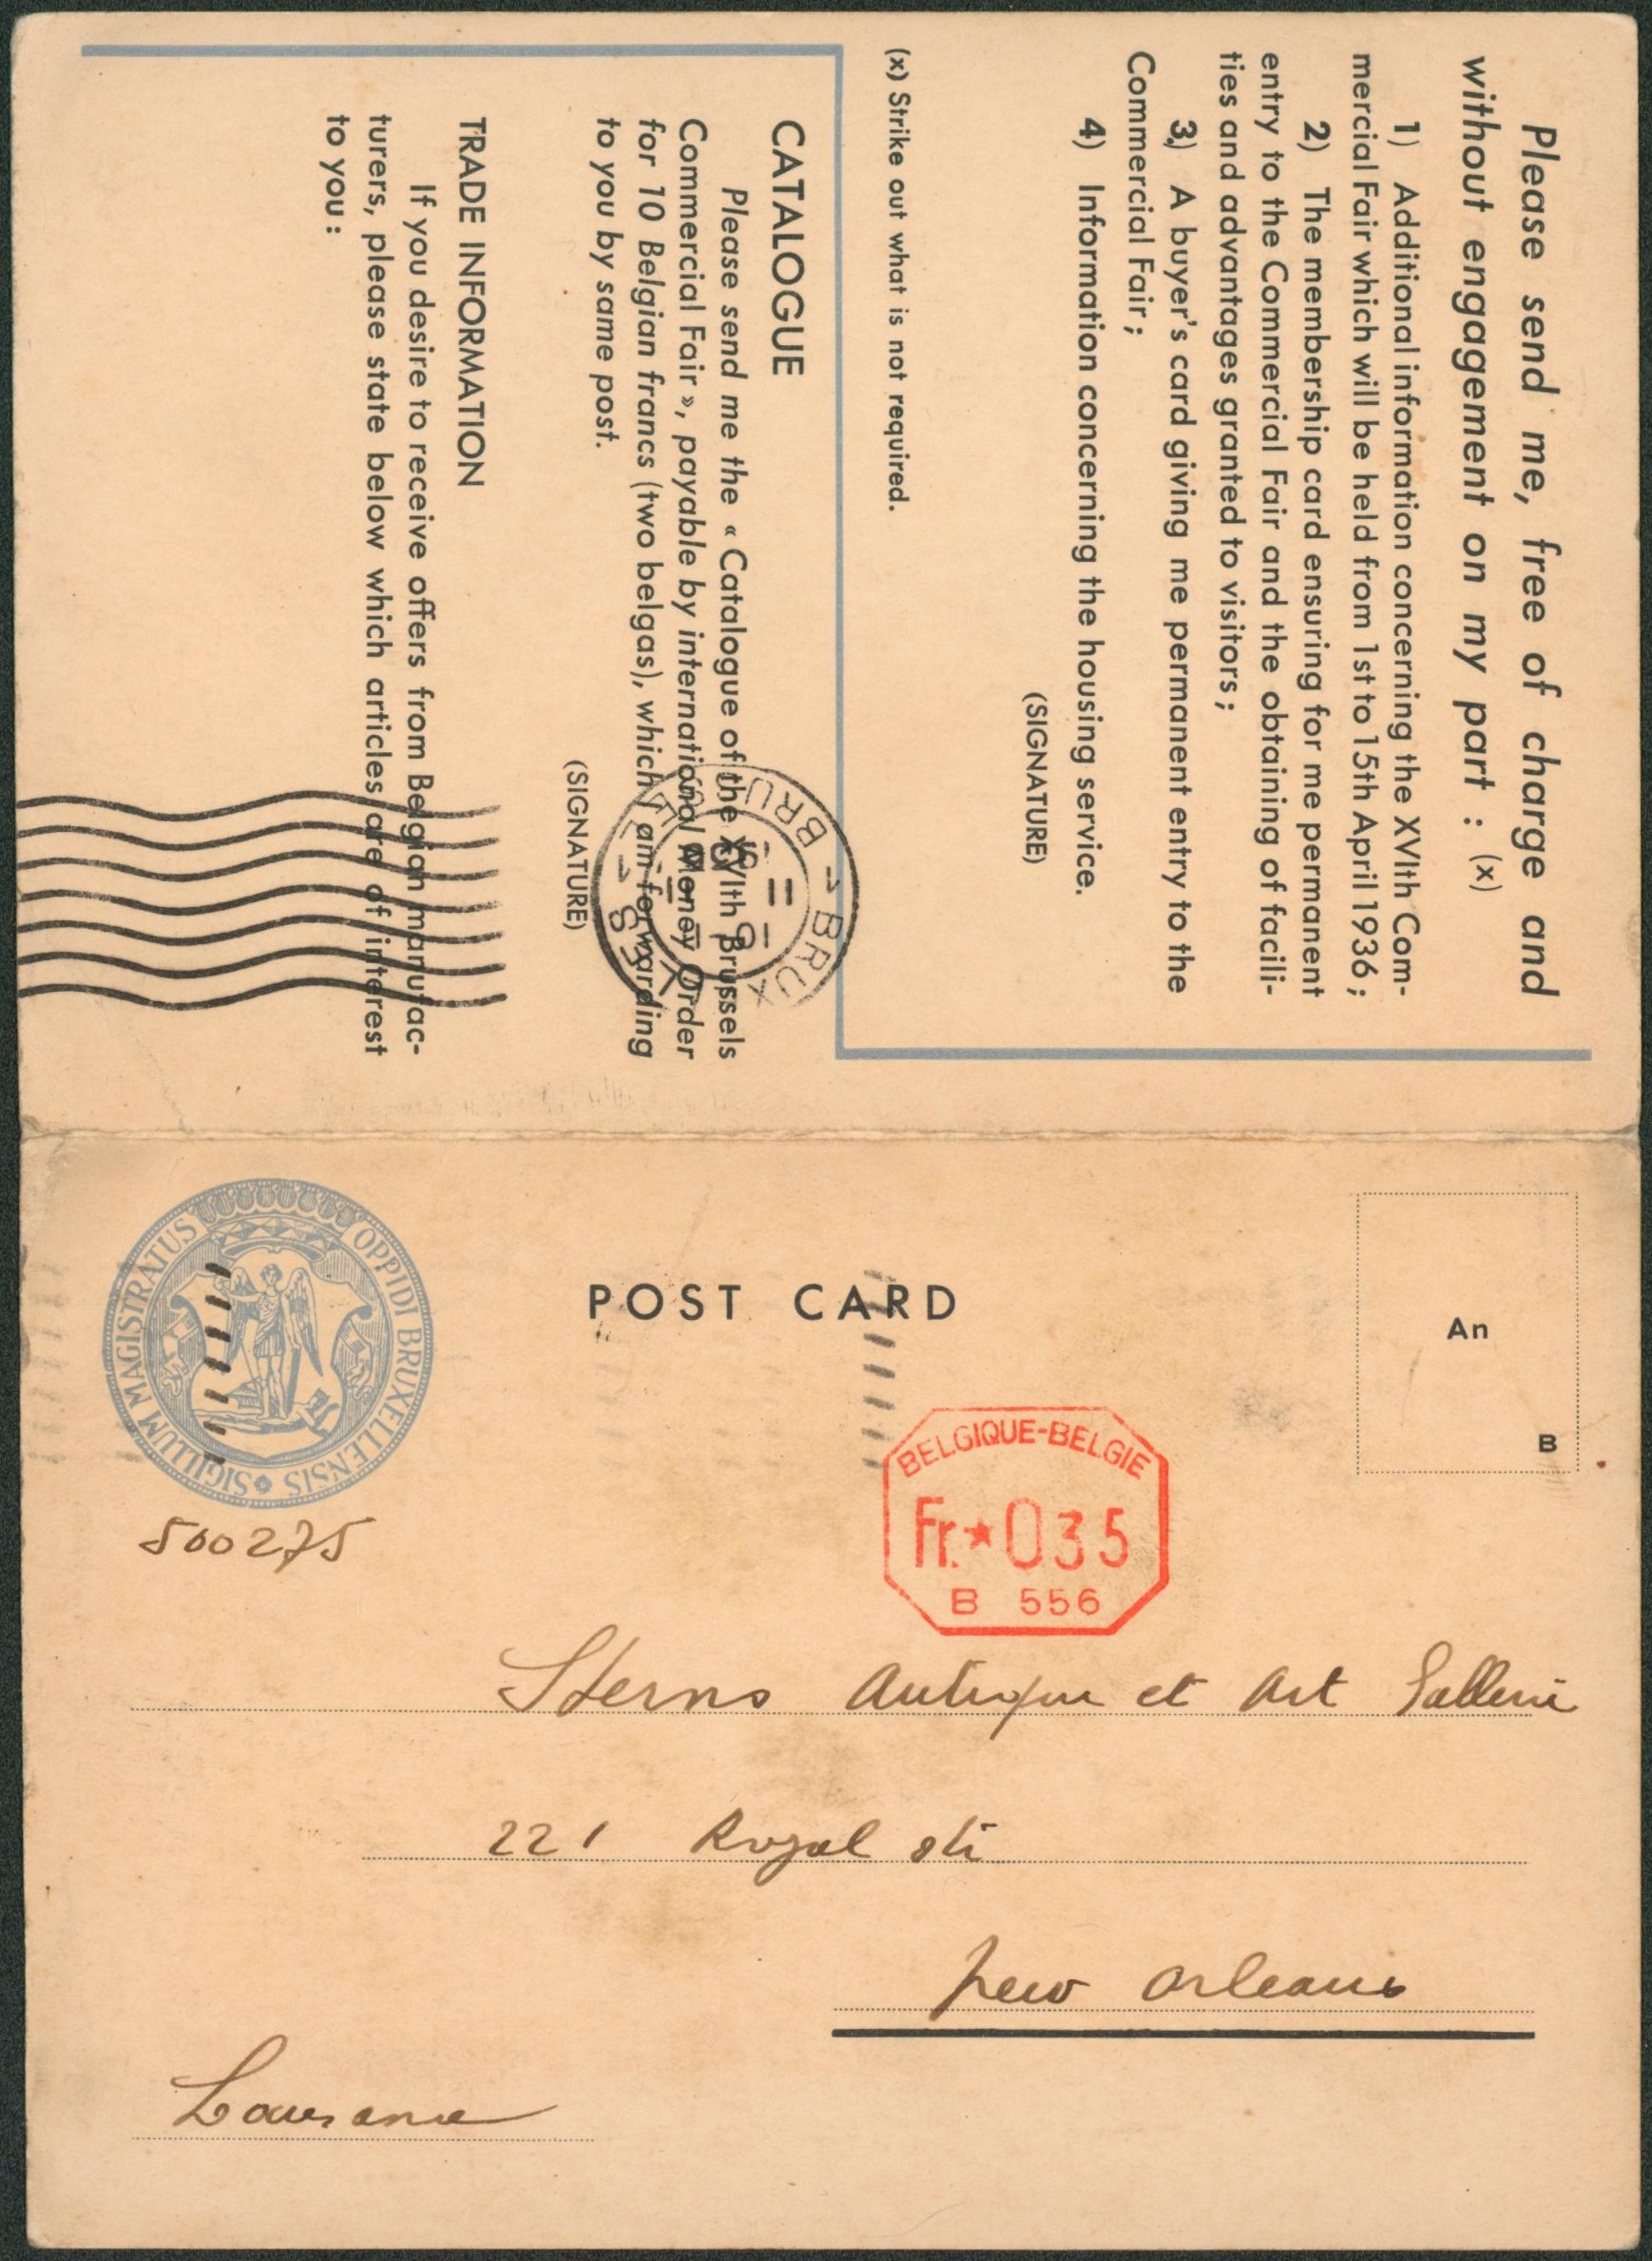 Please send me, free of charge and
without engagement on my part : (x)
1) Additional information concerning the XVIth Com-
mercial Fair which will be held from 1st to 15th April 1936 ;
2) The membership card ensuring for me permanent
entry to the Commercial Fair and the obtaining of facili-
ties and advantages granted to visitors ;
3) A buyer's card giving me permanent entry to the
Commercial Fair ;
4) Information concerning the housing service.
(SIGNATURE)
(x) Strike out what is not required.
CATALOGUE
Please send me the « Catalogue of the XVIth Brussels
Commercial Fair », payable by international Money Order
for 10 Belgian francs (two belgas), which I am forwarding
to you by same post.
(SIGNATURE)
TRADE INFORMATION
If you desire to receive offers from Belgian manufac-
turers, please state below which articles are of interest
to you :
SIGILLUM MAGISTRATUS OPPIDI BRUXELLENSIS
POST CARD
An
B
BELGIQUE-BELGIE
Fr.★035
B 556
500275
Sterns Antique et Art Gallerie
221 Royal
New Orleans